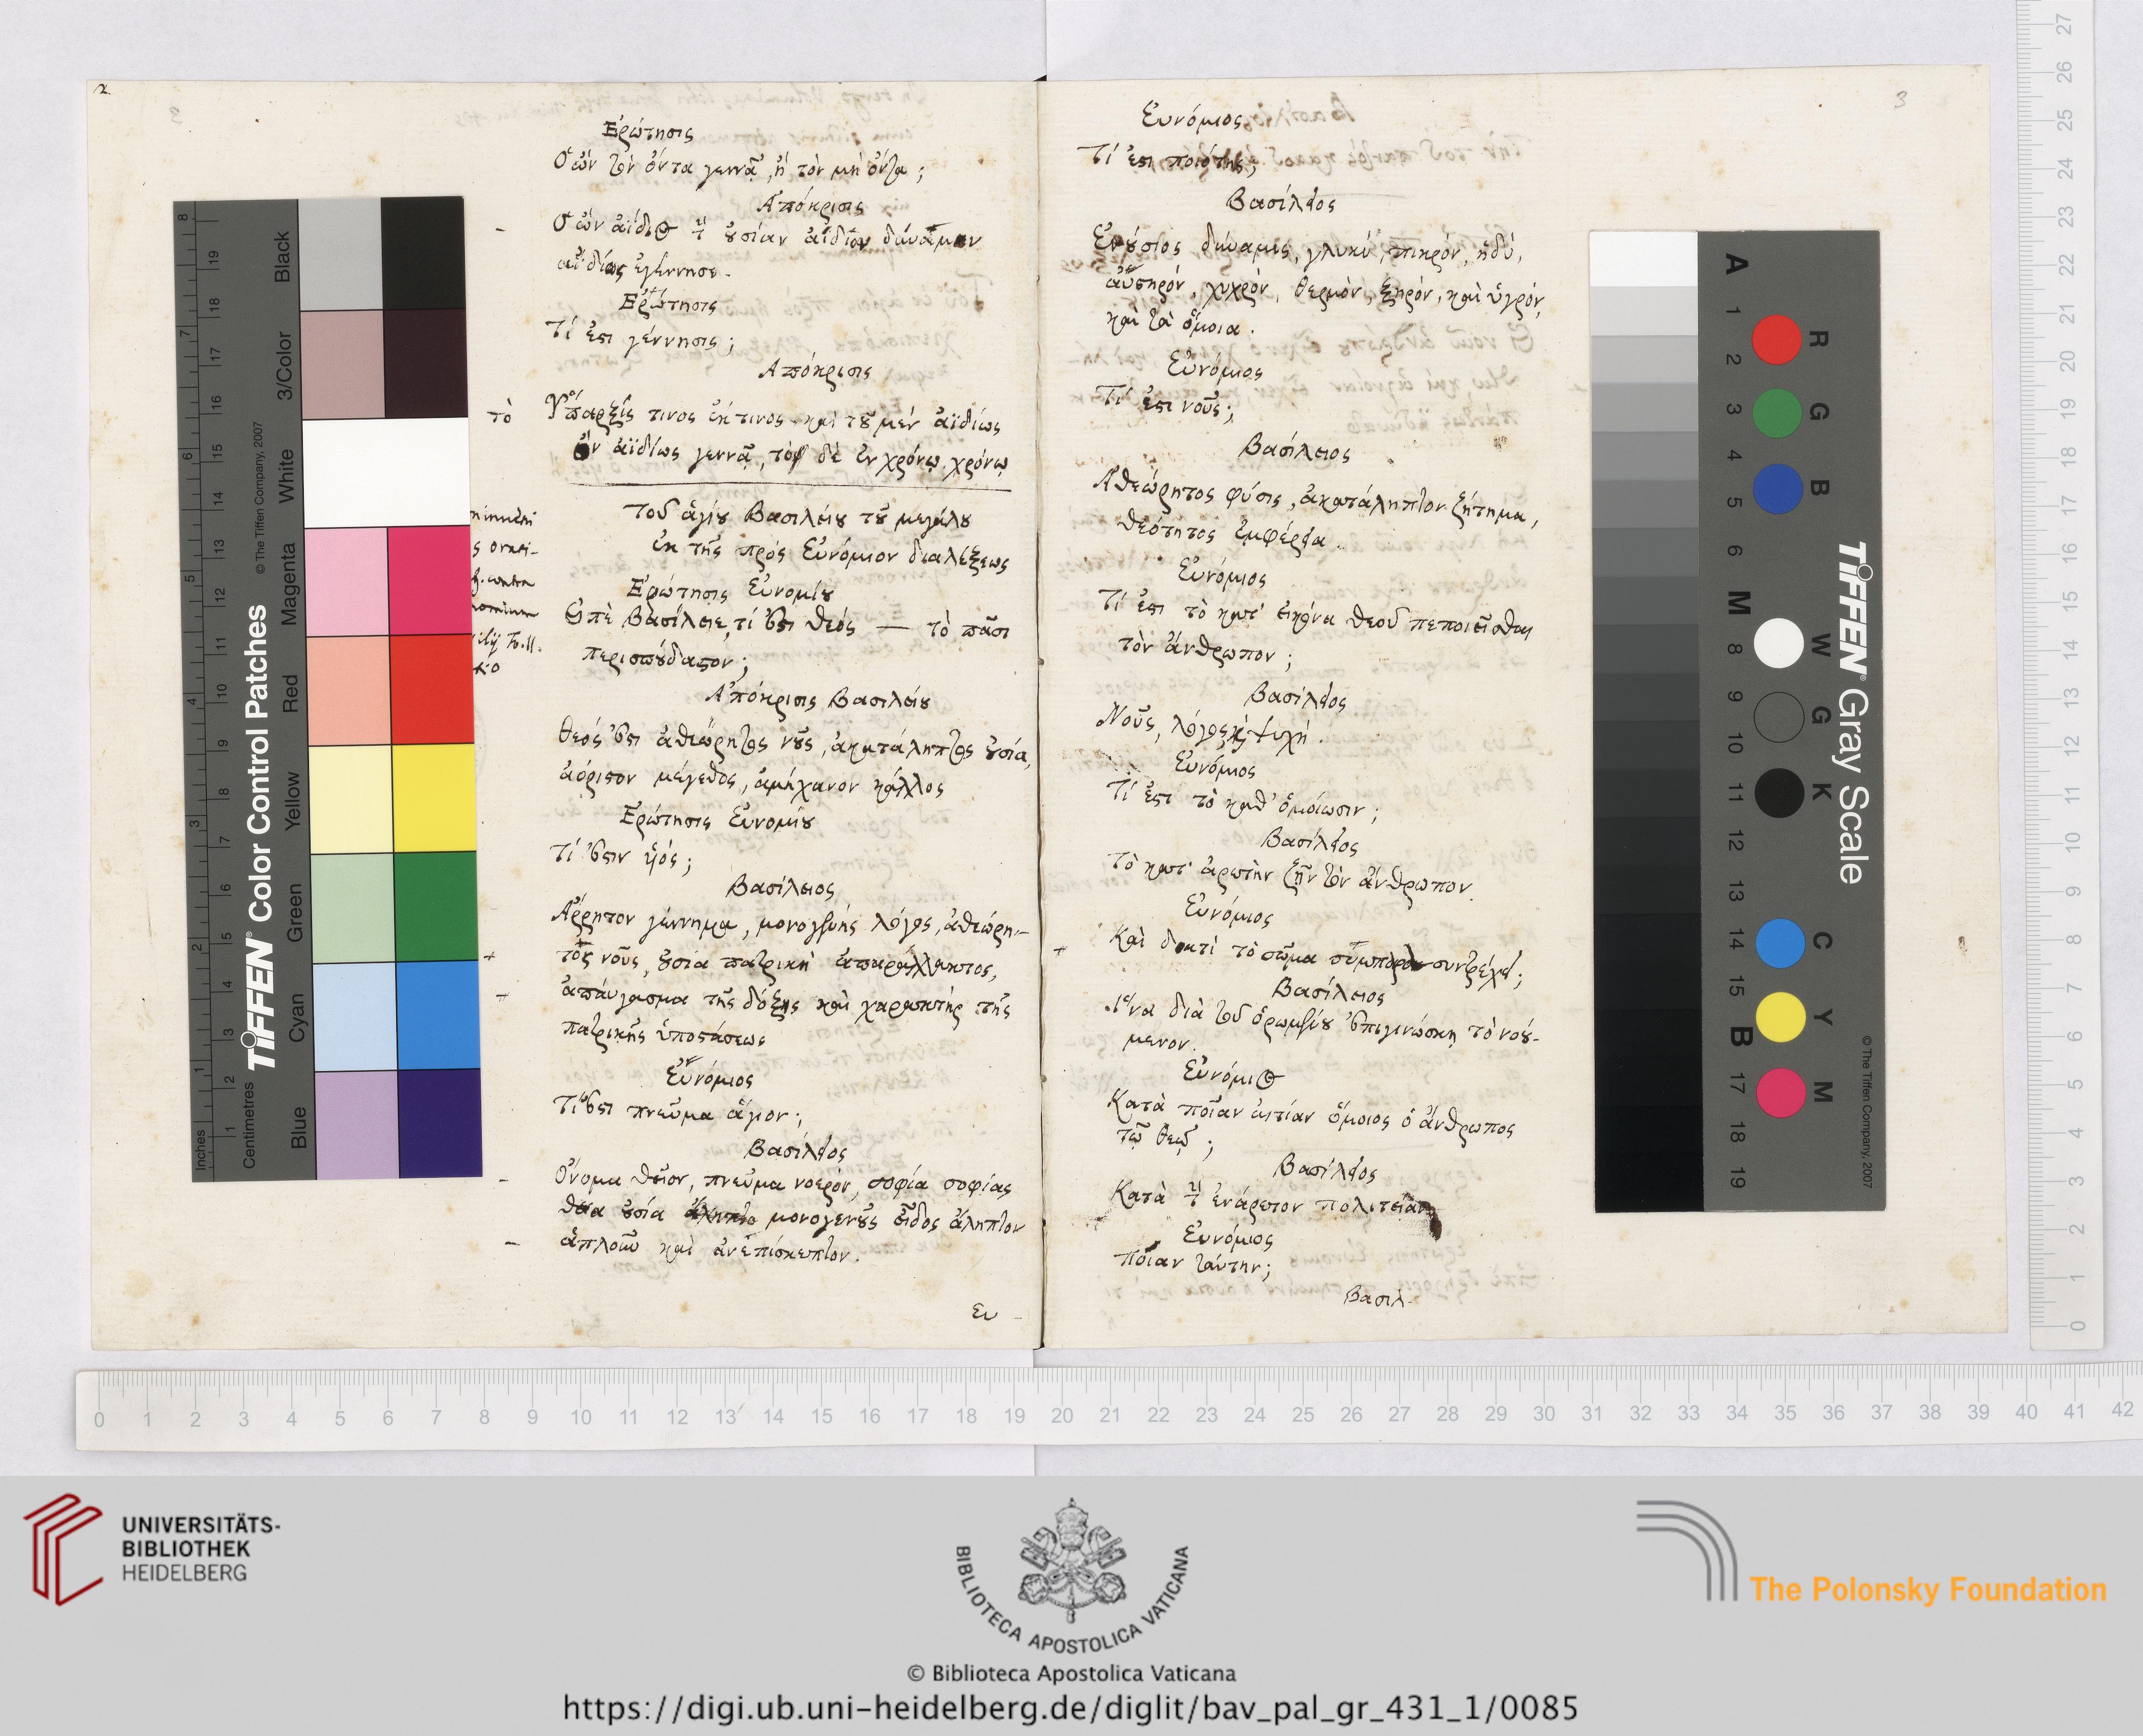 2
Ἐρώτησις
Ὁ ὢν τὸν ὄντα γεννᾷ, ἢ τὸν μὴ ὄντα;
Ἀπόκρισις
Ὁ ὢν ἀΐδιος τὴν ȣσίαν ἀΐδιον δύναμιν
ἀϊδίως ἐγέννησε.
Ἐρώτησις
Τί ἐστι γέννησις;
Ἀπόκρισις
τὸ Ὕπαρξίς τινος ἔκ τινος καὶ τȣ͂ μὲν ἀϊδίως
ὂν ἀϊδίως γεννᾷ, τὸ δὲ ἐν χρόνῳ χρόνῳ
Τοῦ ἁγίȣ Βασιλείȣ τȣ͂ μεγάλȣ
ἐκ τῆς πρὸς Εὐνόμιον διαλέξεως
Ἐρώτησις Εὐνομίȣ
Εἰπὲ Βασίλειε, τί ἐστι θεός — τὸ πᾶσι
περισπȣ́δαστον;
Ἀπόκρισις Βασιλείȣ
Θεός ἐστι ἀθεώρητος νȣ͂ς, ἀκατάληπτος ȣσία,
ἀόριστον μέγεθος, ἀμήχανον κάλλος
Ἐρώτησις Εὐνομίȣ
Τί ἐστιν υἱός;
Βασίλειος
Ἄρρητον γέννημα, μονογενὴς λόγος, ἀθεώρη-
τος νοῦς, ȣσία πατρικὴ ἀπαράλλακτος,
ἀπαύγασμα τῆς δόξης καὶ χαρακτὴρ τῆς
πατρικῆς ὑποστάσεως
Εὐνόμιος
Τί ἐστι πνεῦμα ἅγιον;
Βασίλειος
Ὄνομα θεῖον, πνεῦμα νοερόν, σοφία σοφίας
θεία ȣσία μονογενȣ͂ς εἶδος ἄληπτον
ἁπλοῦν καὶ ἀνεπίσκεπτον.
Ευ
3
Εὐνόμιος
Τί ἐστι ποιότης;
Βασίλειος
Ἐνȣ́σιος δύναμις, γλυκύ, πικρόν, ἡδύ,
αὐστηρόν, ψυχρόν, θερμόν, ξηρόν, καὶ ὑγρόν,
καὶ τὰ ὅμοια.
Εὐνόμιος
Τί ἐστι νοῦς;
Βασίλειος
Ἀθεώρητος φύσις, ἀκατάληπτον ζήτημα,
θεότητος ἐμφέρεια.
Εὐνόμιος
Τί ἐστι τὸ κατ' εἰκόνα θεοῦ πεποιεῖσθαι
τὸν ἄνθρωπον;
Βασίλειος
Νοῦς, λόγος, καὶ ψυχή.
Εὐνόμιος
Τί ἐστι τὸ καθ' ὁμοίωσιν;
Βασίλειος
Τὸ κατ' ἀρετὴν ζῆν τὸν ἄνθρωπον.
Εὐνόμιος
Καὶ διατί τὸ σῶμα συντρέχει;
Βασίλειος
Ἵνα διὰ τοῦ ὁρωμένȣ ἐπιγινώσκῃ τὸ νοȣ́-
μενον.
Εὐνόμιος
Κατὰ ποῖαν αἰτίαν ὅμοιος ὁ ἄνθρωπος
τῷ θεῷ;
Βασίλειος
Κατὰ τὴν ἐνάρετον πολιτείαν
Εὐνόμιος
Ποῖαν ταύτην;
Βασιλ-
TIFFEN® Color Control Patches
© The Tiffen Company, 2007
Black
3/Color
White
Magenta
Red
Yellow
Green
Cyan
Blue
Inches
Centimetres
TIFFEN® Gray Scale
© The Tiffen Company, 2007
A 1 2 3 4 5 6 M 8 9 10 11 12 13 14 15 B 17 18 19
R G B W G K C Y M
0 1 2 3 4 5 6 7 8 9 10 11 12 13 14 15 16 17 18 19 20 21 22 23 24 25 26 27 28 29 30 31 32 33 34 35 36 37 38 39 40 41 42
27 26 25 24 23 22 21 20 19 18 17 16 15 14 13 12 11 10 9 8 7 6 5 4 3 2 1 0
UNIVERSITÄTS-
BIBLIOTHEK
HEIDELBERG
BIBLIOTECA APOSTOLICA VATICANA
The Polonsky Foundation
© Biblioteca Apostolica Vaticana
https://digi.ub.uni-heidelberg.de/diglit/bav_pal_gr_431_1/0085